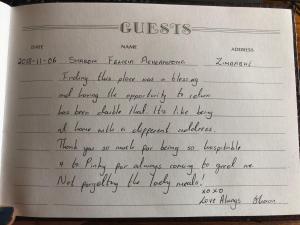 GUESTS
DATE NAME ADDRESS
2018-11-06 Sharon Felicia ZIMBABWE
Finding this place was a blessing
and having the opportunity to return
has been double that. It's like being
at home with a different address.
Thank you so much for being so hospitable
& to Pinky for always coming to greet me.
Not forgetting the tasty meals!
xoxo
Love Always Sharon